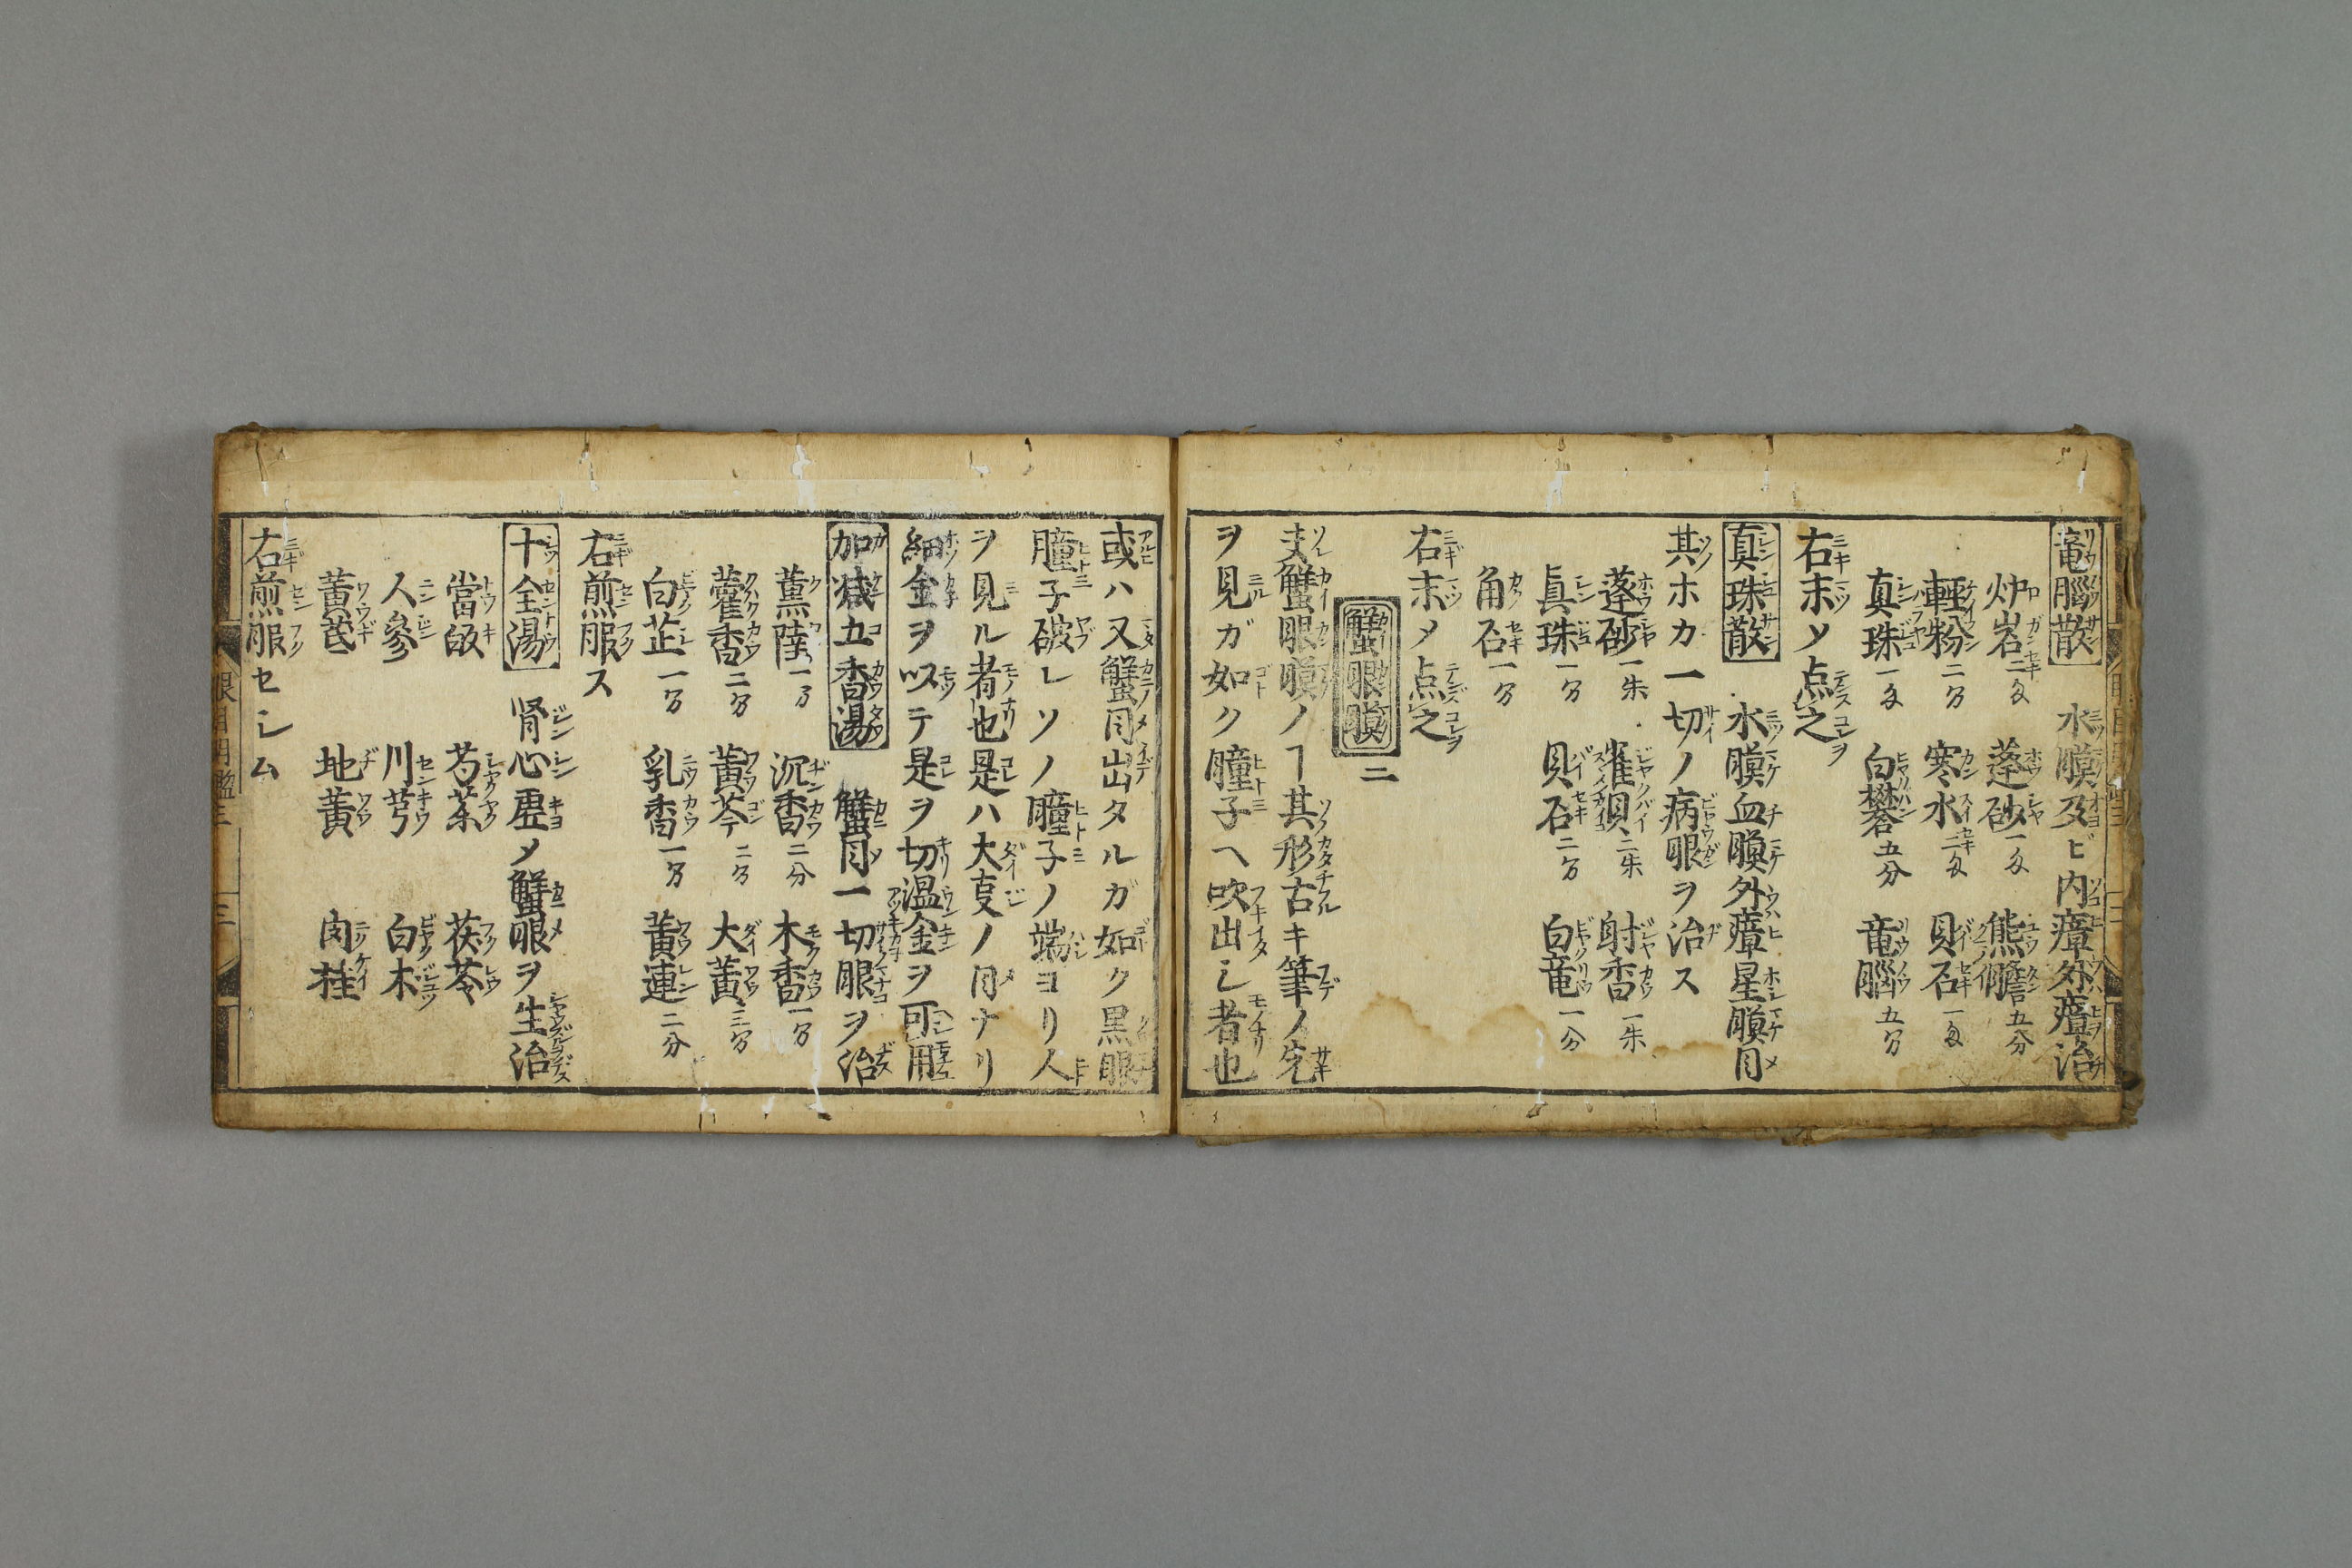 竜脳散 水膜及ビ内瘴外瘴治
炉岩二匁 蓬砂一匁 熊膽五分
輕粉二分 寒水二匁 貝石一匁
真珠一匁 白礬五分 竜腦五分
右末メ点之
真珠散 水膜血膜外瘴星膜目
其ホカ一切ノ病眼ヲ治ス
蓬砂一朱 雀貝二朱 射香一朱
真珠一分 貝石二分 白竜一分
角石一分
右末メ点之
蟹眼膜 二
夫蟹眼膜ノヿ其形古キ筆ノ先
ヲ見ガ如ク瞳子ヘ吹出シ者也
或ハ又蟹目出タルガ如ク黒眼
瞳子破レソノ瞳子ノ端ヨリ人
ヲ見ル者也是ハ大叓ノ目ナリ
細金ヲ以テ是ヲ切温金ヲ可用
加减五香湯 蟹目一切眼ヲ治
薫陸一分 沉香二分 木香一分
藿香二分 黃芩二分 大黄三分
白芷一分 乳香一分 黄連二分
右煎服ス
十全湯 肾心虚メ蟹眼ヲ生治
當皈 芍薬 茯苓
人參 川芎 白朮
黄芪 地黄 肉桂
右煎服セシム